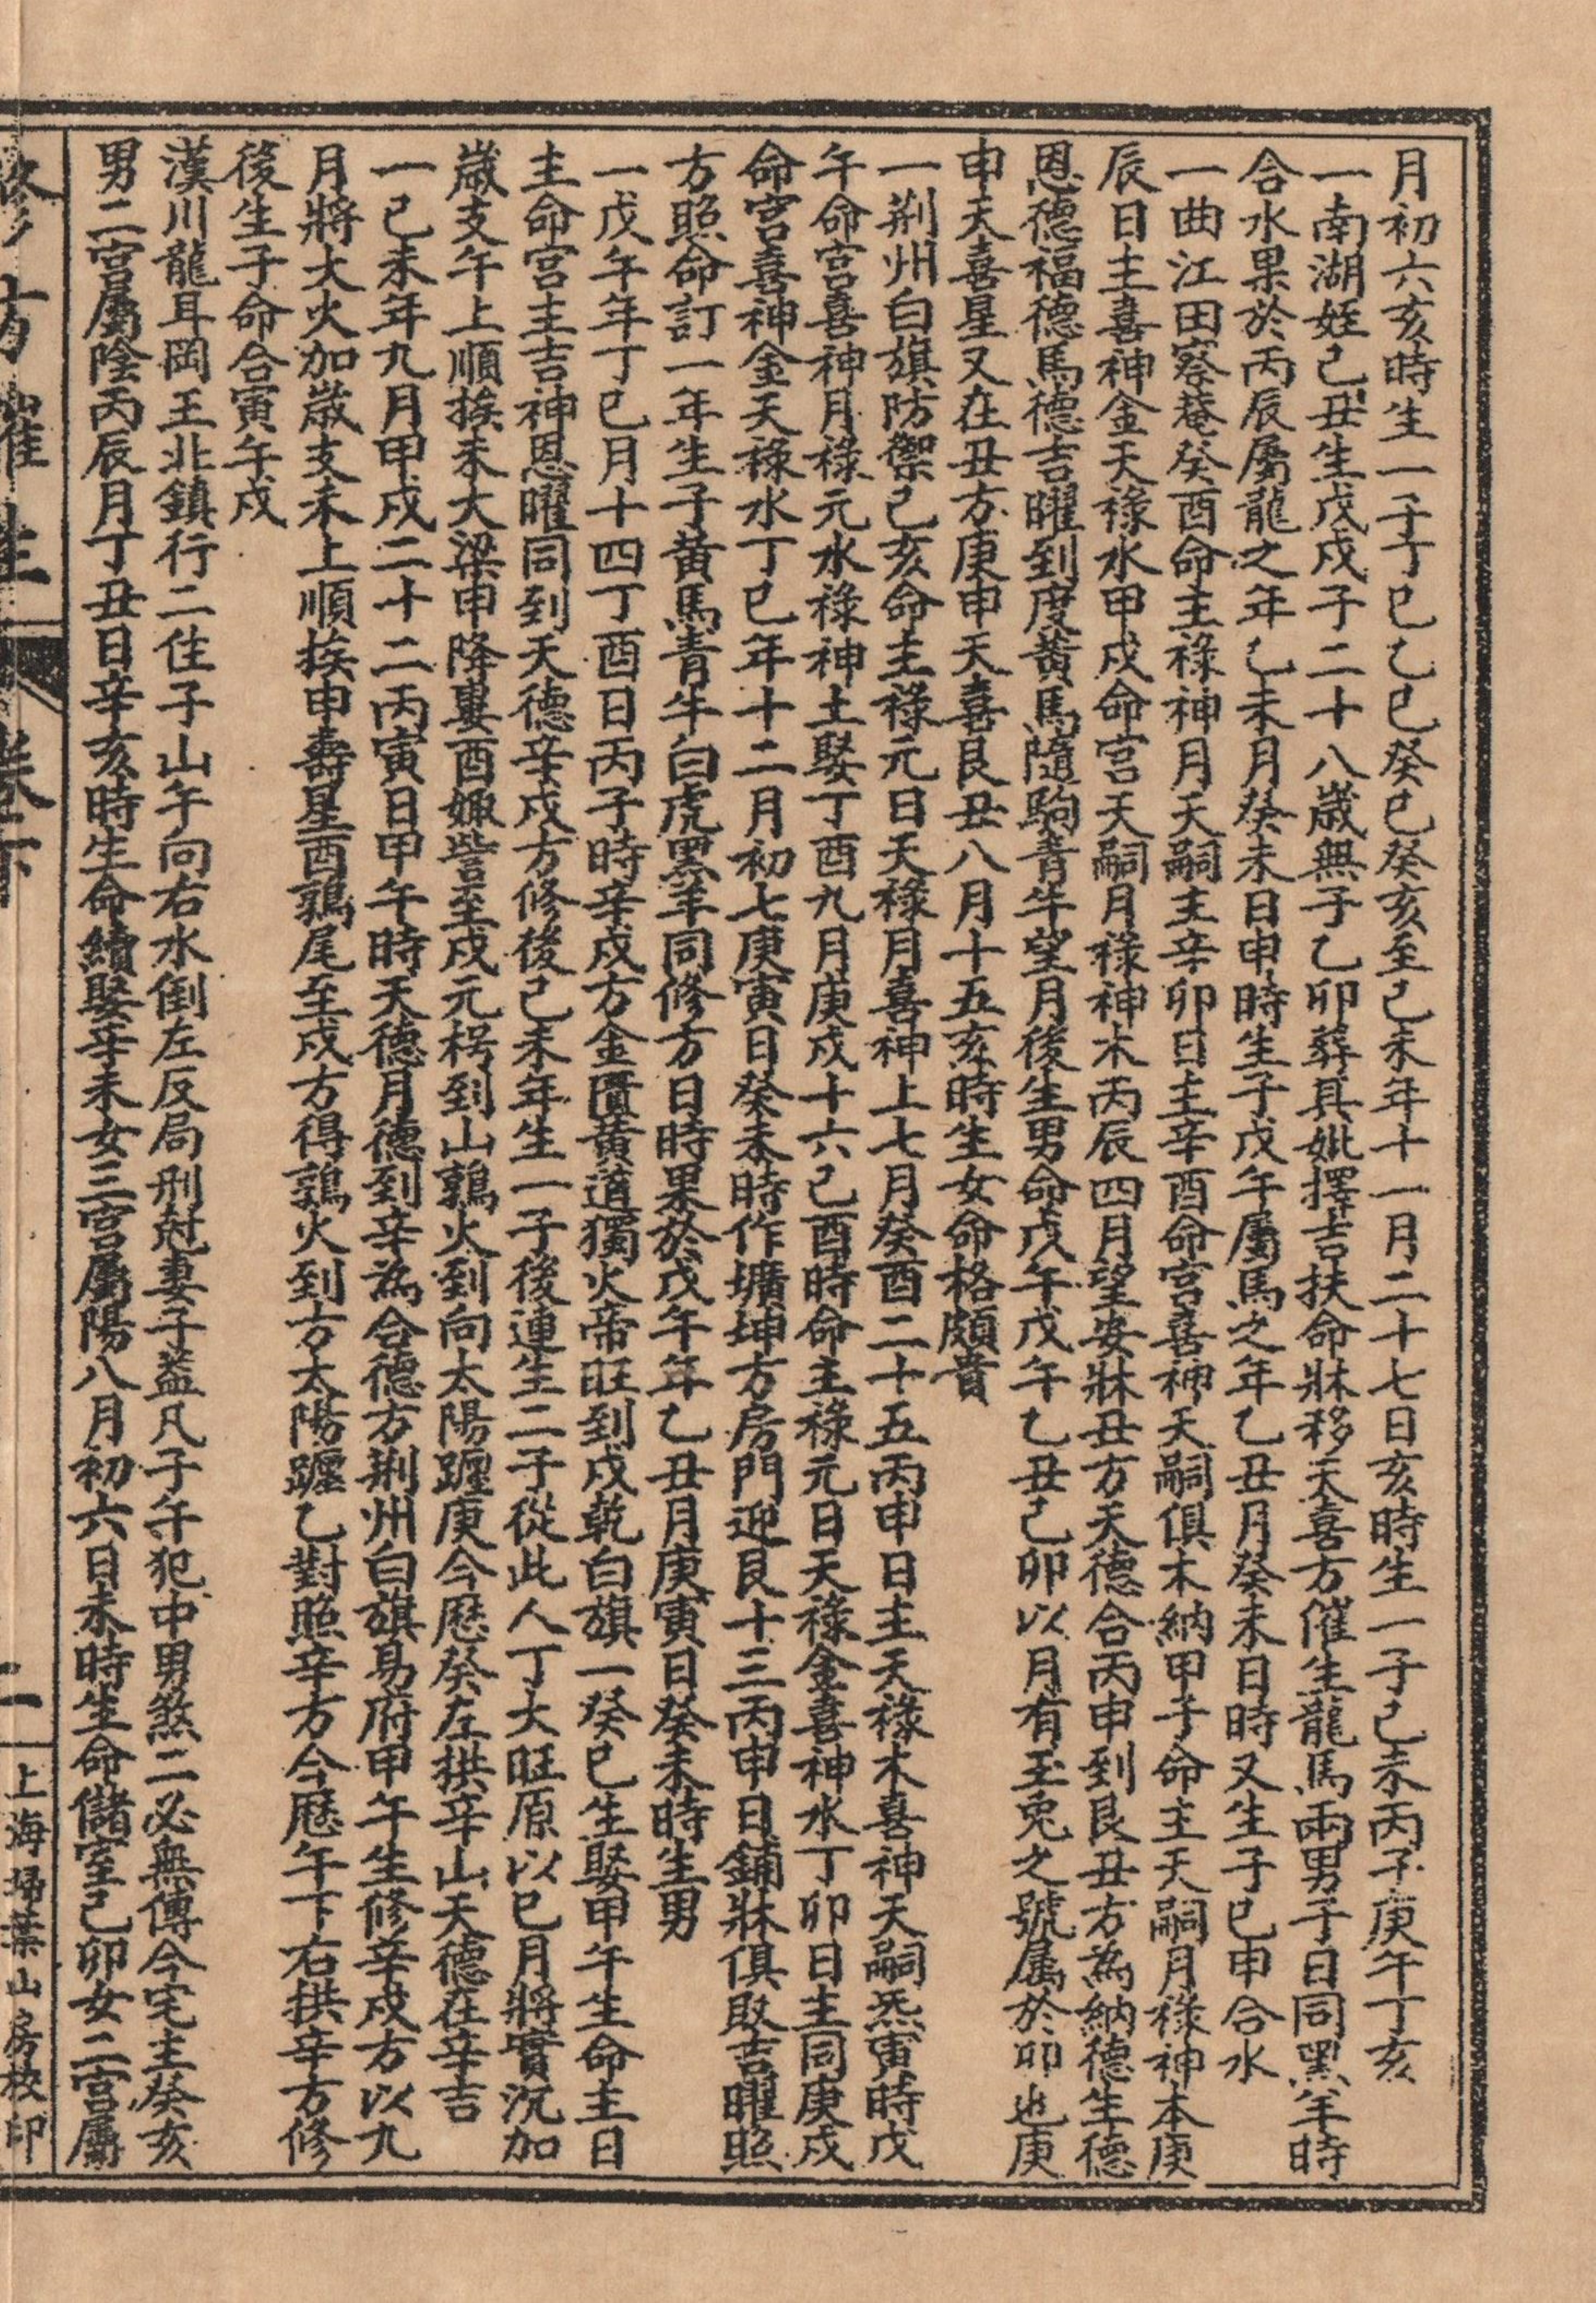 月初六亥時生一子丁巳乙巳癸巳癸亥至己未年十一月二十七日亥時生一子己未丙子庚午丁亥
一南湖姪己丑生戊戌子二十八歲無子乙卯葬其妣擇吉扶命牀移天喜方催生龍馬兩男子日同黑羊時
合水果於丙辰屬龍之年乙未月癸未日申時生子戊午屬馬之年乙丑月癸未日時又生子巳申合水
一曲江田察菴癸酉命主祿神月天嗣主辛卯日主辛酉命宮喜神天嗣俱木納甲子命主天嗣月祿神本庚
辰日主喜神金天祿水甲戌命宮天嗣月祿神木丙辰四月望安牀丑方天德合丙申到艮丑方為納德生德
恩德福德馬德吉曜到度黃馬隨駒青牛望月後生男命戊午戊午乙丑己卯以月有玉兔之號屬於卯也庚
申天喜星又在丑方庚申天喜艮丑八月十五亥時生女命格頗貴
一荆州白旗防禦己亥命主祿元日天祿月喜神上七月癸酉二十五丙申日主天祿木喜神天嗣炁寅時戊
午命宮喜神月祿元水祿神土娶丁酉九月庚戌十六己酉時命主祿元日天祿金喜神水丁卯日主同庚戌
命宮喜神金天祿水丁巳年十二月初七庚寅日癸未時作壙坤方房門迎艮十三丙申日鋪牀俱取吉曜照
方照命訂一年生子黃馬青牛白虎黑羊同修方日時果於戊午年乙丑月庚寅日癸未時生男
一戊午年丁巳月十四丁酉日丙子時辛戌方金匱黃道獨火帝旺到戌乾白旗一癸巳生娶甲午生命主日
主命宮主吉神恩曜同到天德辛戌方修後己未年生一子後連生二子從此人丁大旺原以巳月將實沉加
歲支午上順挨未大梁申降婁酉娵訾至戌元枵到山鶉火到向太陽躔庚今厯癸左拱辛山天德在辛吉
一己未年九月甲戌二十二丙寅日甲午時天德月德到辛為合德方荆州白旗易府甲午生修辛戌方以九
月將大火加歲支未上順挨申壽星酉鶉尾至戌方得鶉火到方太陽躔乙對照辛方今厯午下右拱辛方修
後生子命合寅午戌
漢川龍耳岡王北鎮行二住子山午向右水倒左反局刑尅妻子葢凡子午犯中男煞二必無傳今宅主癸亥
男二宮屬陰丙辰月丁丑日辛亥時生命續娶辛未女三宮屬陽八月初六日未時生命儲室己卯女二宮屬
二
上海掃葉山房校印